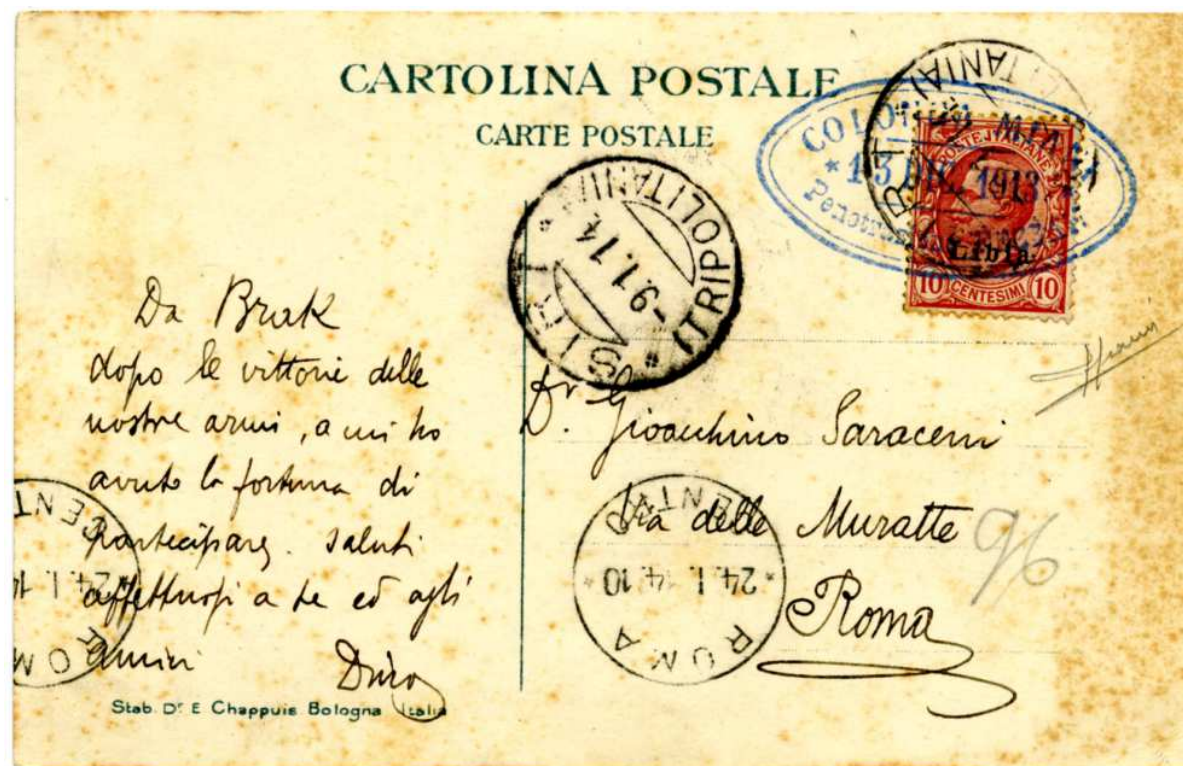 CARTOLINA POSTALE
CARTE POSTALE
COLONNA MIANI
* 13 DIC. 1913
POSTE ITALIANE
Libia
10 CENTESIMI 10
SIRTI
(TRIPOLITANIA)
-9.1.14
SIRTI (TRIPOLITANIA)
Da Brak
dopo le vittorie delle
nostre armi, a cui ho
avuto la fortuna di
partecipare, saluti
affettuosi a te ed agli
amici
Dr. Gioacchino Saraceni
Via delle Muratte
96
Roma
ROMA CENTRO
* 24.1.14.10 *
ROMA CENTRO
24.1.14
Stab. Dr. E. Chappuis Bologna Italia